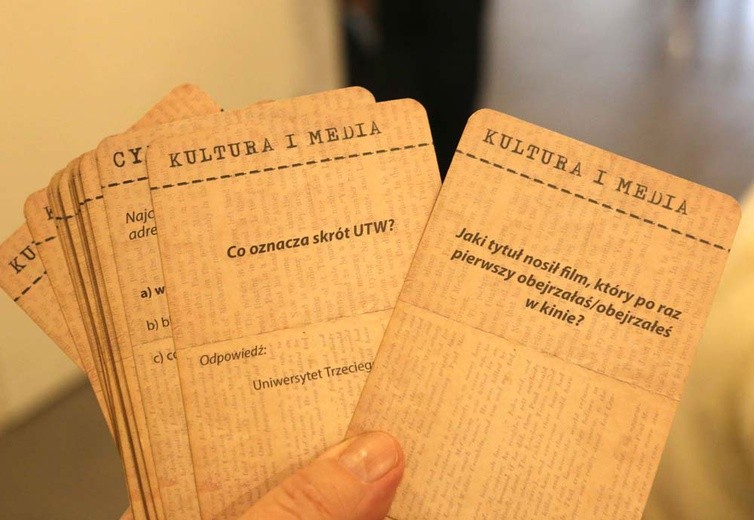 KU
CY
Najc
adre
a) w
b) b
c) co
KULTURA I MEDIA
Co oznacza skrót UTW?
Odpowiedź:
Uniwersytet Trzecieg
KULTURA I MEDIA
Jaki tytuł nosił film, który po raz
pierwszy obejrzałaś/obejrzałeś
w kinie?